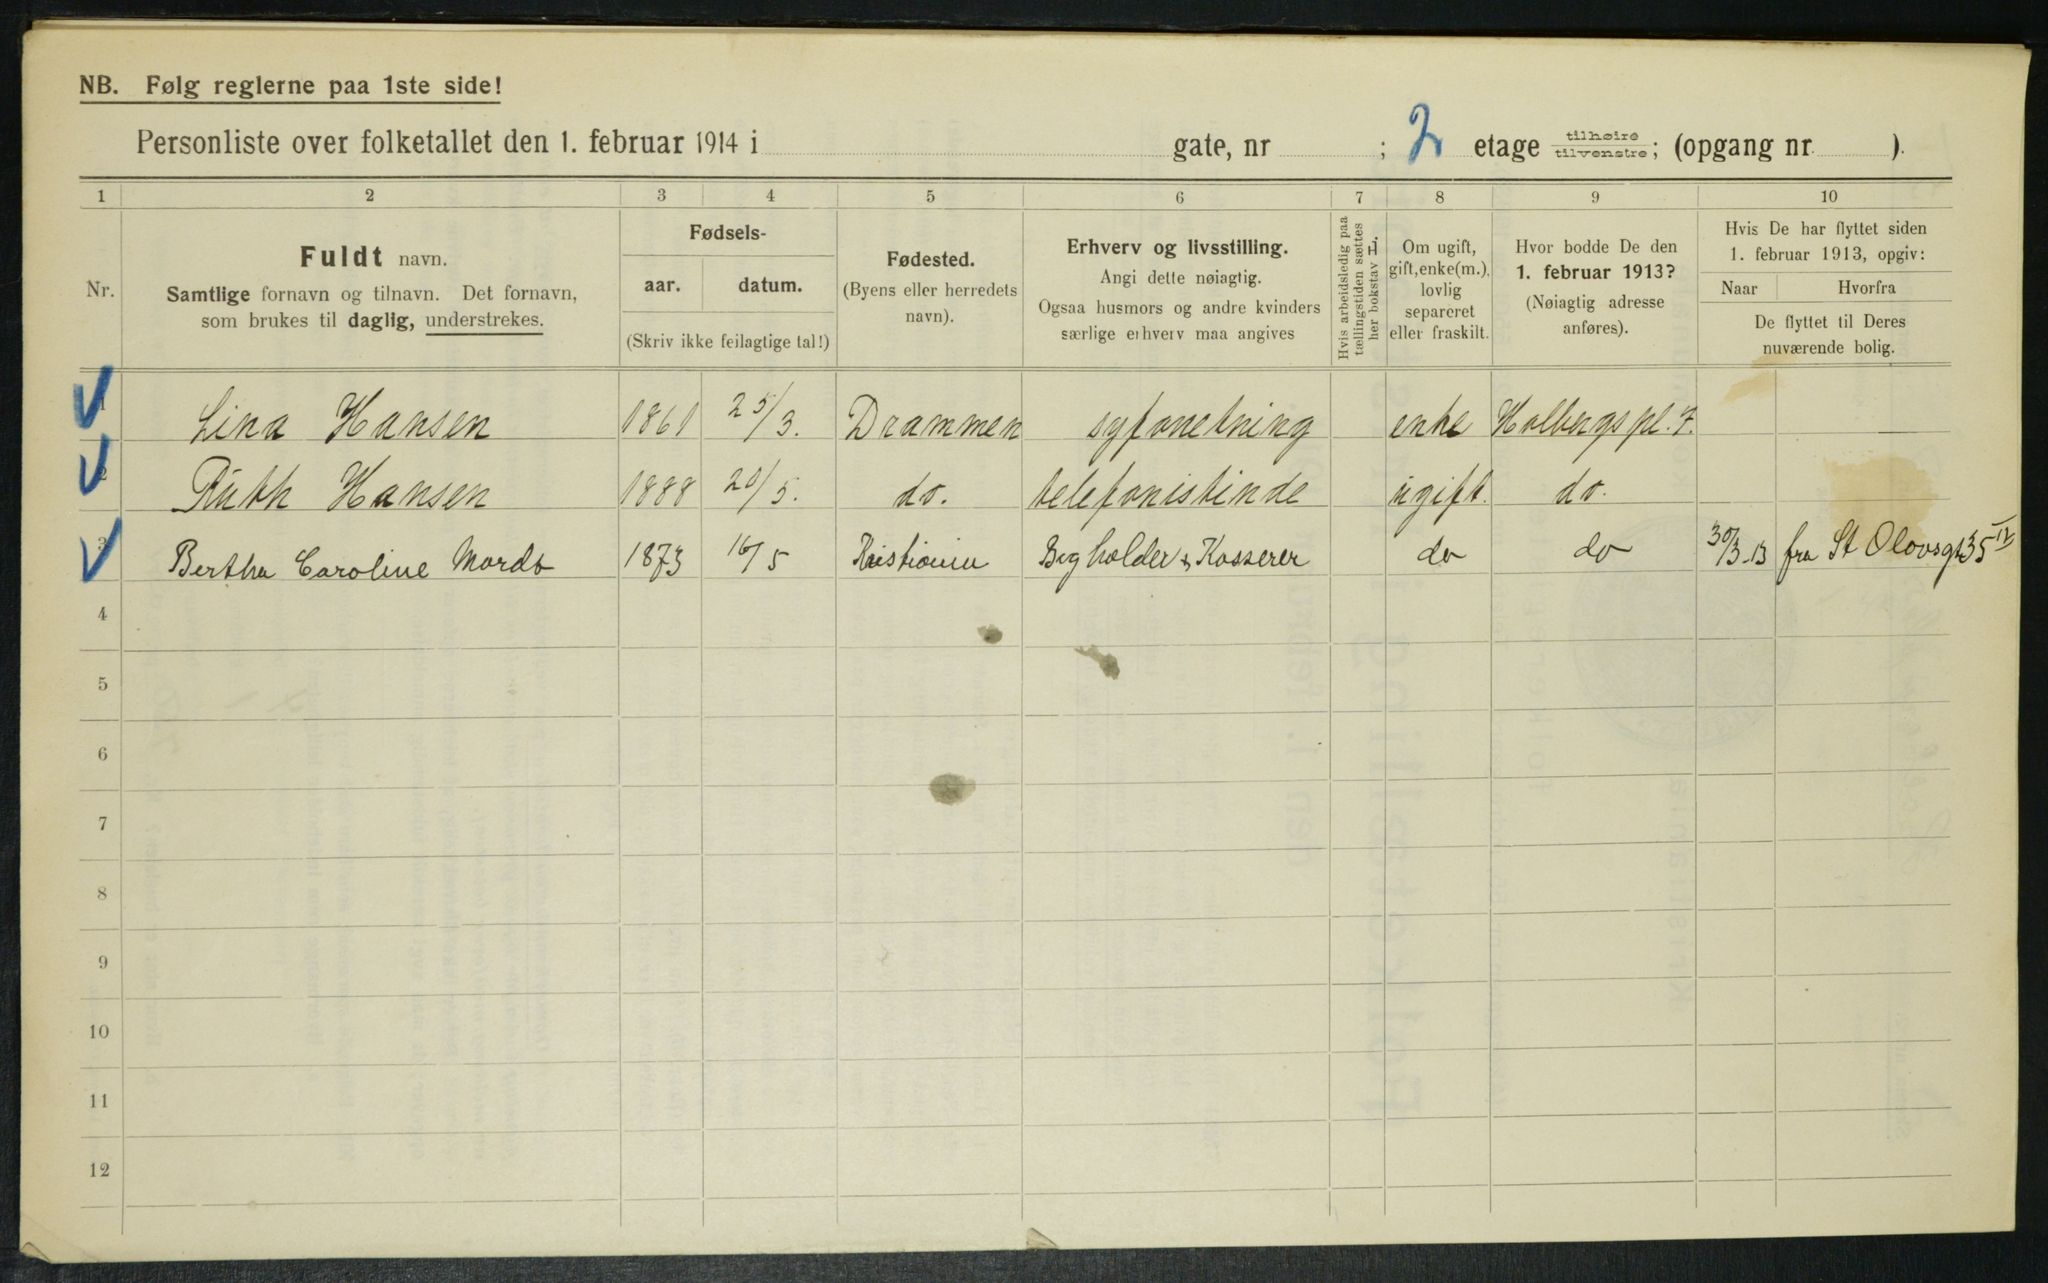 NB. Følg reglerne paa 1ste side!
Personliste over folketallet den 1. februar 1914 i gate, nr ; 2 etage tilhøire tilvenstre; (opgang nr ).
1 2 3 4 5 6 7 8 9 10
Nr.
Fuldt navn.
Samtlige fornavn og tilnavn. Det fornavn,
som brukes til daglig, understrekes.
Fødsels-
aar. datum.
(Skriv ikke feilagtige tal!)
Fødested.
(Byens eller herredets
navn).
Erhverv og livsstilling.
Angi dette nøiagtig.
Ogsaa husmors og andre kvinders
særlige erhverv maa angives
Hvis arbeidsledig paa
tællingstiden sættes
her bokstav
Om ugift,
gift, enke(m.),
lovlig
separeret
eller fraskilt.
Hvor bodde De den
1. februar 1913?
(Nøiagtig adresse
anføres).
Hvis De har flyttet siden
1. februar 1913, opgiv:
Naar Hvorfra
De flyttet til Deres
nuværende bolig.
1 Lina Hansen 1861 25/3. Drammen syforretning enke Holbergs pl. 7.
2 Ruth Hansen 1888 20/5. do. telefonistinde ugift. do.
3 Bertha Caroline 1873 16/5 Kristiania Bogholder & Kasserer do do 30/3-13 fra St Olavsgt 35 IV
4
5
6
7
8
9
10
11
12